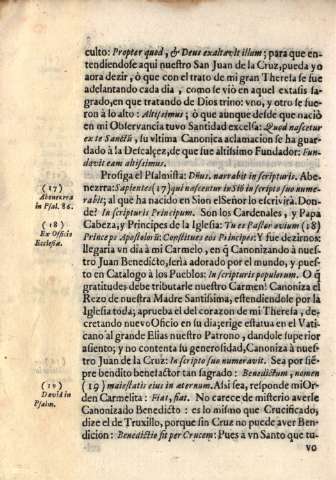 culto: Propter quod, & Deus exaltavit illum; para que en-
tendiendose aqui nuestro San Juan de la Cruz, pueda yo
aora dezir, ò que con el trato de mi gran Theresa se fue
adelantando cada dia, como se viò en aquel extasis sa-
grado, en que tratando de Dios trino: vno, y otro se fue-
ron à lo alto: Altissimus; ò que aunque desde que naciò
en mi Observancia tuvo Santidad excelsa: Quod nascetur
ex te Sanctũ, su vltima Canonica aclamacion se ha guar-
dado à la Descalçez, de que fue altissimo Fundador: Fun-
davit eam altissimus.
Prosiga el Psalmista: Dñus. narrabit in scripturis. Abe-
nezrra: Sapientes (17) qui nascetur in Siõ in scripto suo nume-
rabit; al que ha nacido en Sion el Señor lo escrivirà. Don-
de? In scripturis Principum. Son los Cardenales, y Papa
Cabeza, y Principes de la Iglesia: Tu es Pastor ovium (18)
Princeps Apostolorũ: Constitues eos Principes: Y fue dezirnos:
llegaria vn dia à mi Carmelo, en q̃ Canonizando à nues-
tro Juan Benedicto, seria adorado por el mundo, y pues-
to en Catalogo à los Pueblos: In scripturis populorum. O q̃
gratitudes debe tributarle nuestro Carmen! Canoniza el
Rezo de nuestra Madre Santissima, estendiendole por la
Iglesia toda; aprueba el del corazon de mi Theresa, de-
cretando nuevo Oficio en su dia; erige estatua en el Vati-
cano al grande Elias nuestro Patrono, dandole superior
asiento; y no contenta su generosidad, Canoniza à nues-
tro Juan de la Cruz: In scripto suo numeravit. Sea por siẽ-
pre bendito benefactor tan sagrado: Benedictum, nomen
(19) maiestatis eius in æternum. Alsi sea, responde mi Or-
den Carmelita: Fiat, fiat. No carece de misterio averle
Canonizado Benedicto: es lo mismo que Crucificado,
dize el de Truxillo, porque sin Cruz no puede aver Ben-
dicion: Benedictio fit per Crucem: Pues a vn Santo que tu-
vo
(17)
Abenezrra
in Psal. 86.
(18)
Ex Officio
Ecclesiæ.
(19)
David in
Psalm.